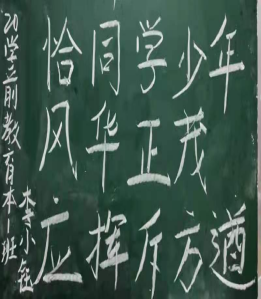 恰同学少年
风华正茂
应挥斥方遒
20学前教育本1班
李小